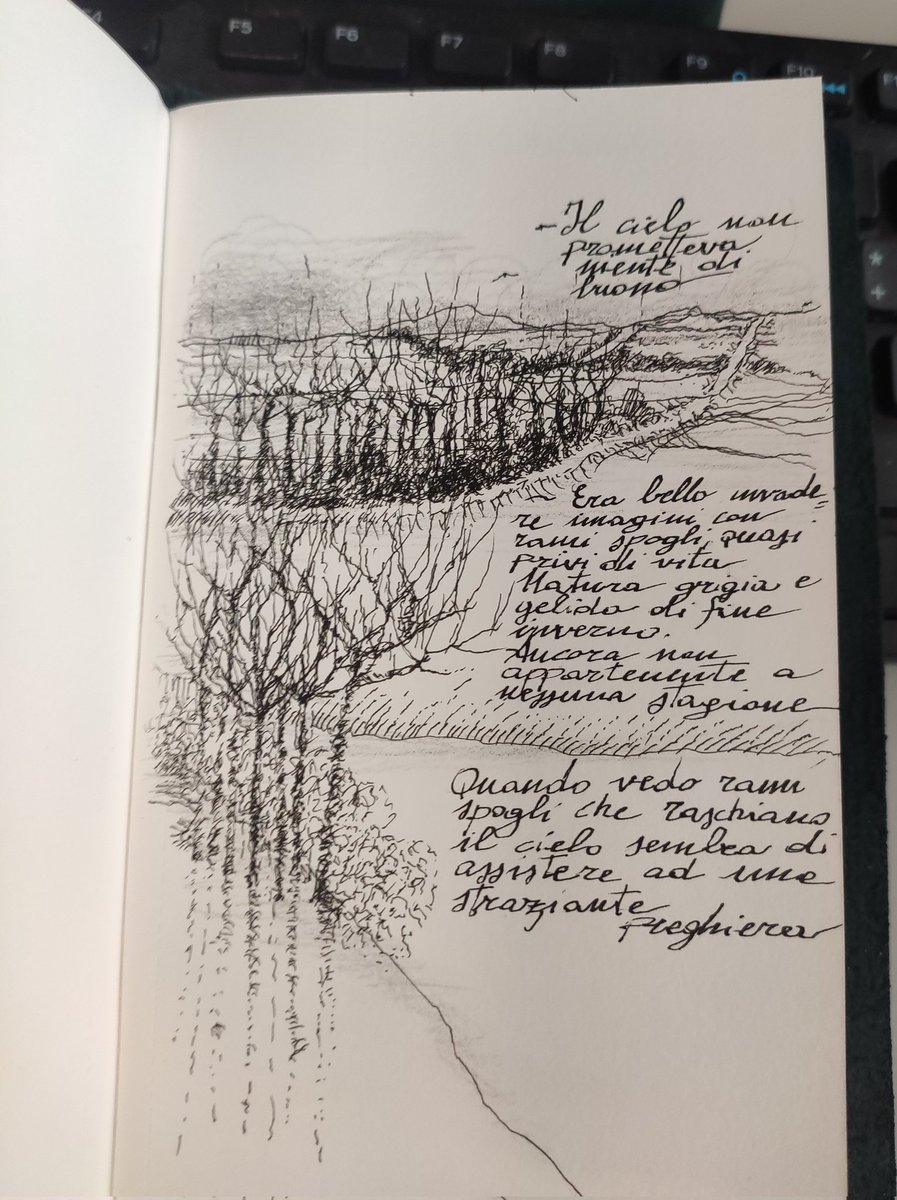 F4
F5
F6
F7
F8
F9
F10
- Il cielo non
prometteva
niente di
buono
Era bello invade=
re imagini con
rami spogli, quasi
privi di vita
Natura grigia e
gelida di fine
inverno.
Ancora non
appartenente a
nessuna stagione
Quando vedo rami
spogli che raschiano
il cielo sembra di
assistere ad una
straziante
preghiera